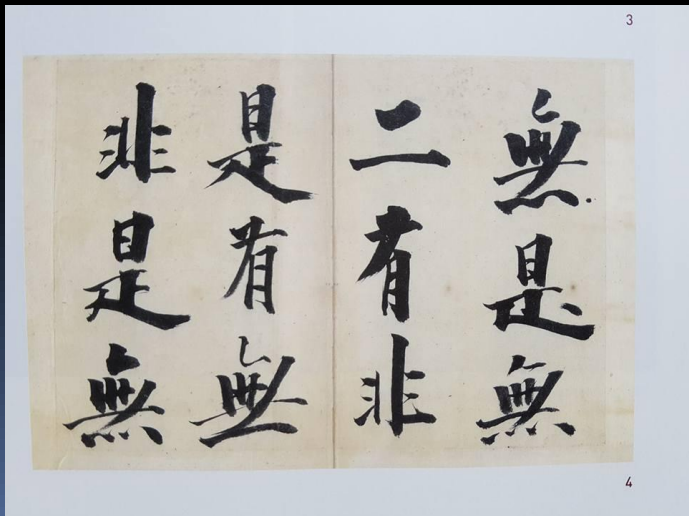 3
無是無
二有非
是有無
非是無
4